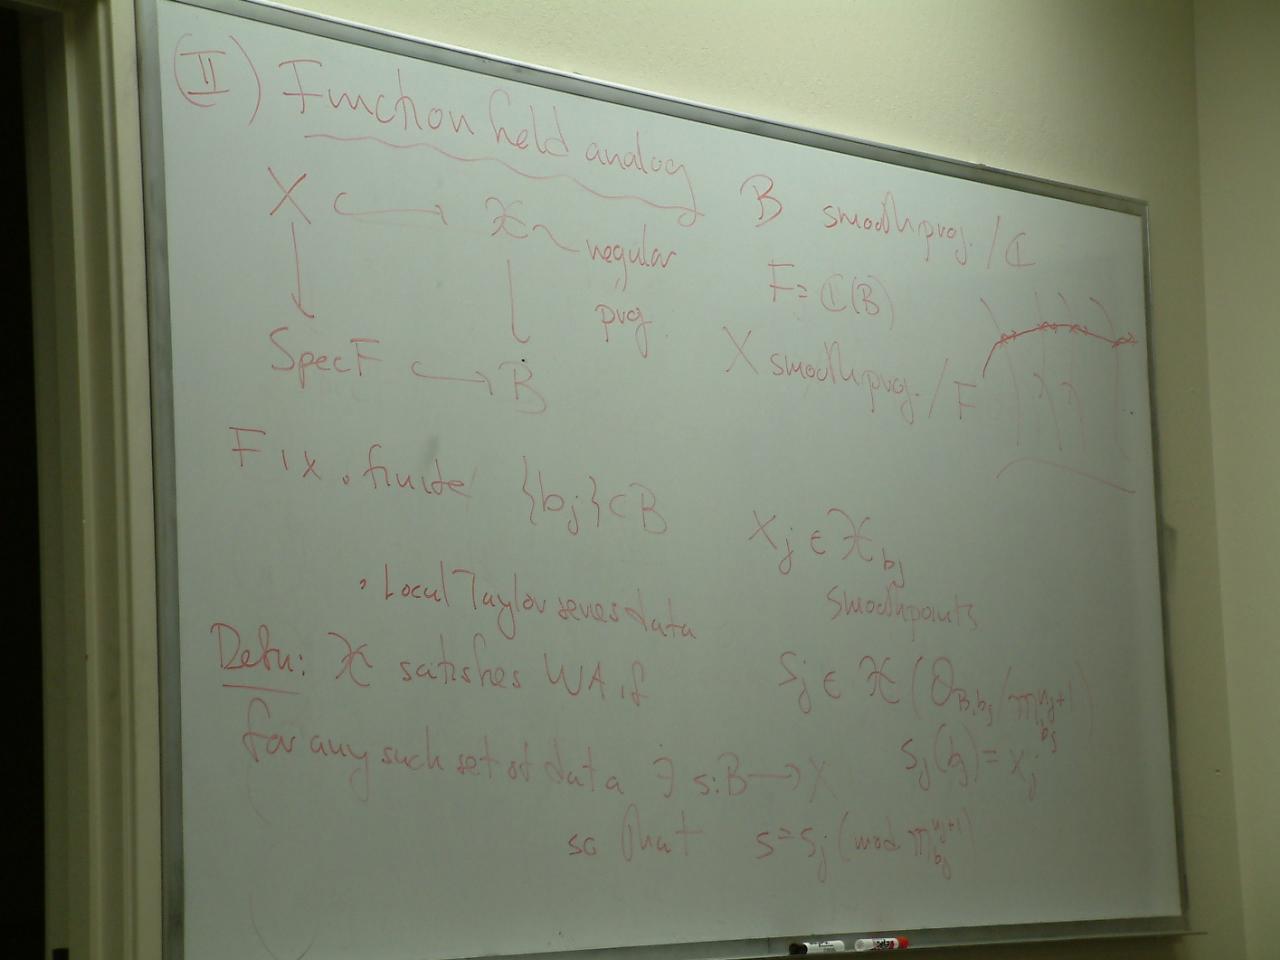 (II) Function field analog
X ↪ 𝒳 ~ regular proj.
Spec F ↪ B
B smooth proj. / ℂ
F = ℂ(B)
X smooth proj. / F
Fix • finite {b_j} ⊂ B
x_j ∈ 𝒳_{b_j}
smooth points
• Local Taylor series data
s_j ∈ 𝒳(O_{B,b_j}/m_{b_j}^{n_j+1})
s_j(b_j) = x_j
Defn: 𝒳 satisfies WA if
for any such set of data ∃ s: B → X
so that s ≡ s_j (mod m_{b_j}^{n_j+1})